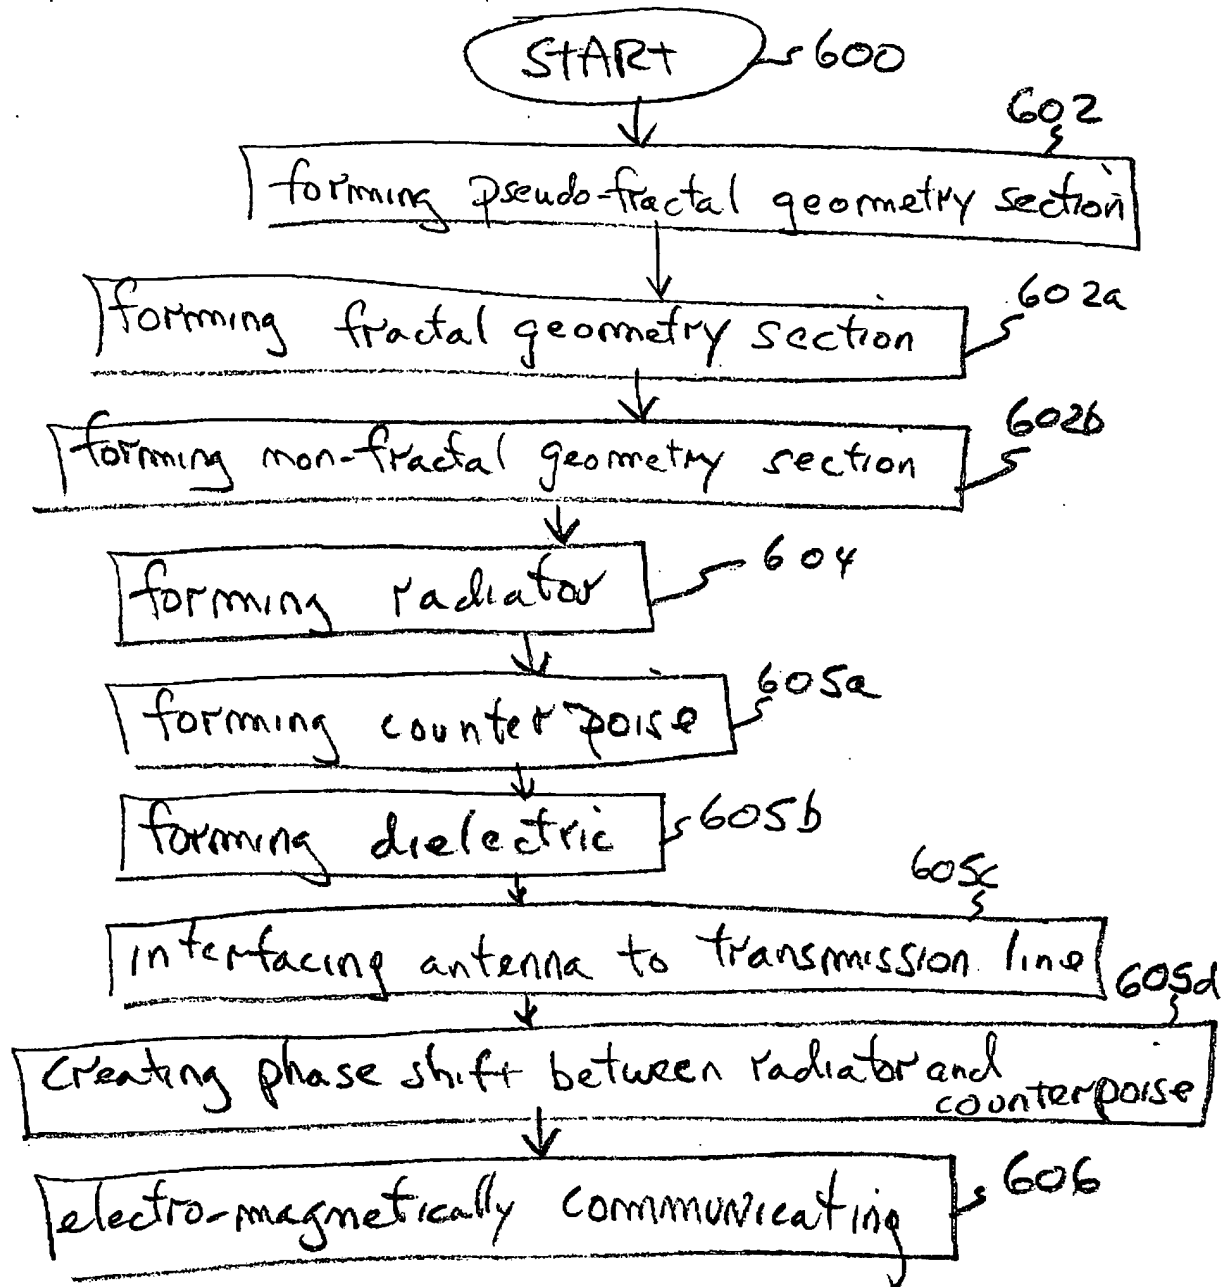 START 600
602
forming pseudo-fractal geometry section
602a
forming fractal geometry section
602b
forming non-fractal geometry section
604
forming radiator
605a
forming counterpoise
forming dielectric 605b
605c
interfacing antenna to transmission line
605d
creating phase shift between radiator and
counterpoise
606
electro-magnetically communicating